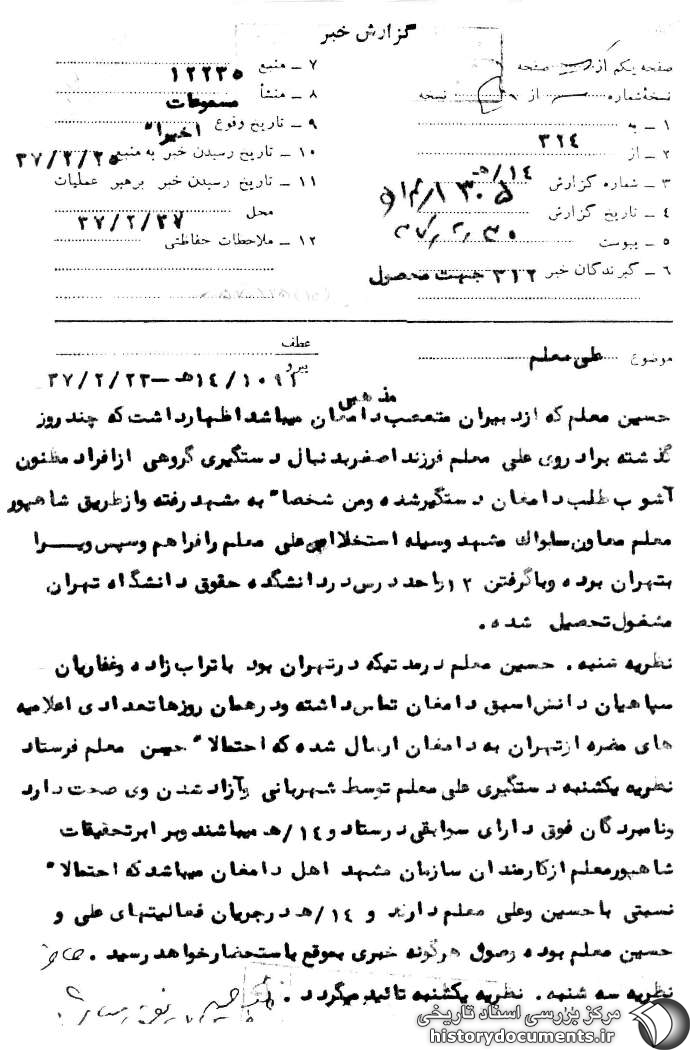 گزارش خبر
صفحه یکم از صفحه
نسخه شماره از نسخه
۱ ـ به
۲ ـ از ۳۱۴
۳ ـ شماره گزارش
۴ ـ تاریخ گزارش
۵ ـ پیوست
۶ ـ گیرندگان خبر ۳۱۲ جهت محصول
۷ ـ منبع ۱۲۲۳۵
۸ ـ منشأ مسموعات
۹ ـ تاریخ وقوع اخیرا"
۱۰ ـ تاریخ رسیدن خبر به منبع ۳۷/۲/۲۵
۱۱ ـ تاریخ رسیدن خبر برهبر عملیات
محل ۳۷/۲/۲۷
۱۲ ـ ملاحظات حفاظتی
موضوع علی معلم
عطف
پیرو ۱۰۹۲/۱۴هـ ـ ۳۷/۲/۲۳
حسین معلم که از دبیران متعصب مذهبی دامغان میباشد اظهار داشت که چند روز
گذشته برادر وی علی معلم فرزند اصغر بدنبال دستگیری گروهی از افراد مظنون
آشوب طلب دامغان دستگیر شده ومن شخصا" به مشهد رفته واز طریق شاهپور
معلم معاون ساواک مشهد وسیله استخلاص علی معلم رافراهم وسپس ویـــرا
بتهران بوده وباگرفتن ۱۲ واحد درس در دانشگده حقوق دانشگاه تهران
مشغول تحصیل شده .
نظریه شنبه . حسین معلم درمدتیکه درتهران بود باتراب زاده وغفاریان
سپاهیان دانش اسبق دامغان تماس داشته ودرهمان روزهاتعدادی اعلامیه
های مضره ازتهران به دامغان ارسال شده که احتمالا" حسن معلم فرستاد
نظریه یکشنبه دستگیری علی معلم توسط شهربانی وآزاد شدن وی صحت دارد
ونامبردگان فوق دارای سوابقی درستاد و ۱۴/هـ میباشند وبر ابرتحقیقات
شاهپور معلم ازکارمندان سازمان مشهد اهل دامغان میباشد که احتمالا"
نسبتی باحسین وعلی معلم دارند و ۱۴/هـ درجریان فعالیتهای علی و
حسین معلم بوده وصول هرگونه خبری بموقع باستحضار خواهد رسید .
نظریه سه شنبه . نظریه یکشنبه تائید میگردد .
مرکز بررسی اسناد تاریخی
historydocuments.ir